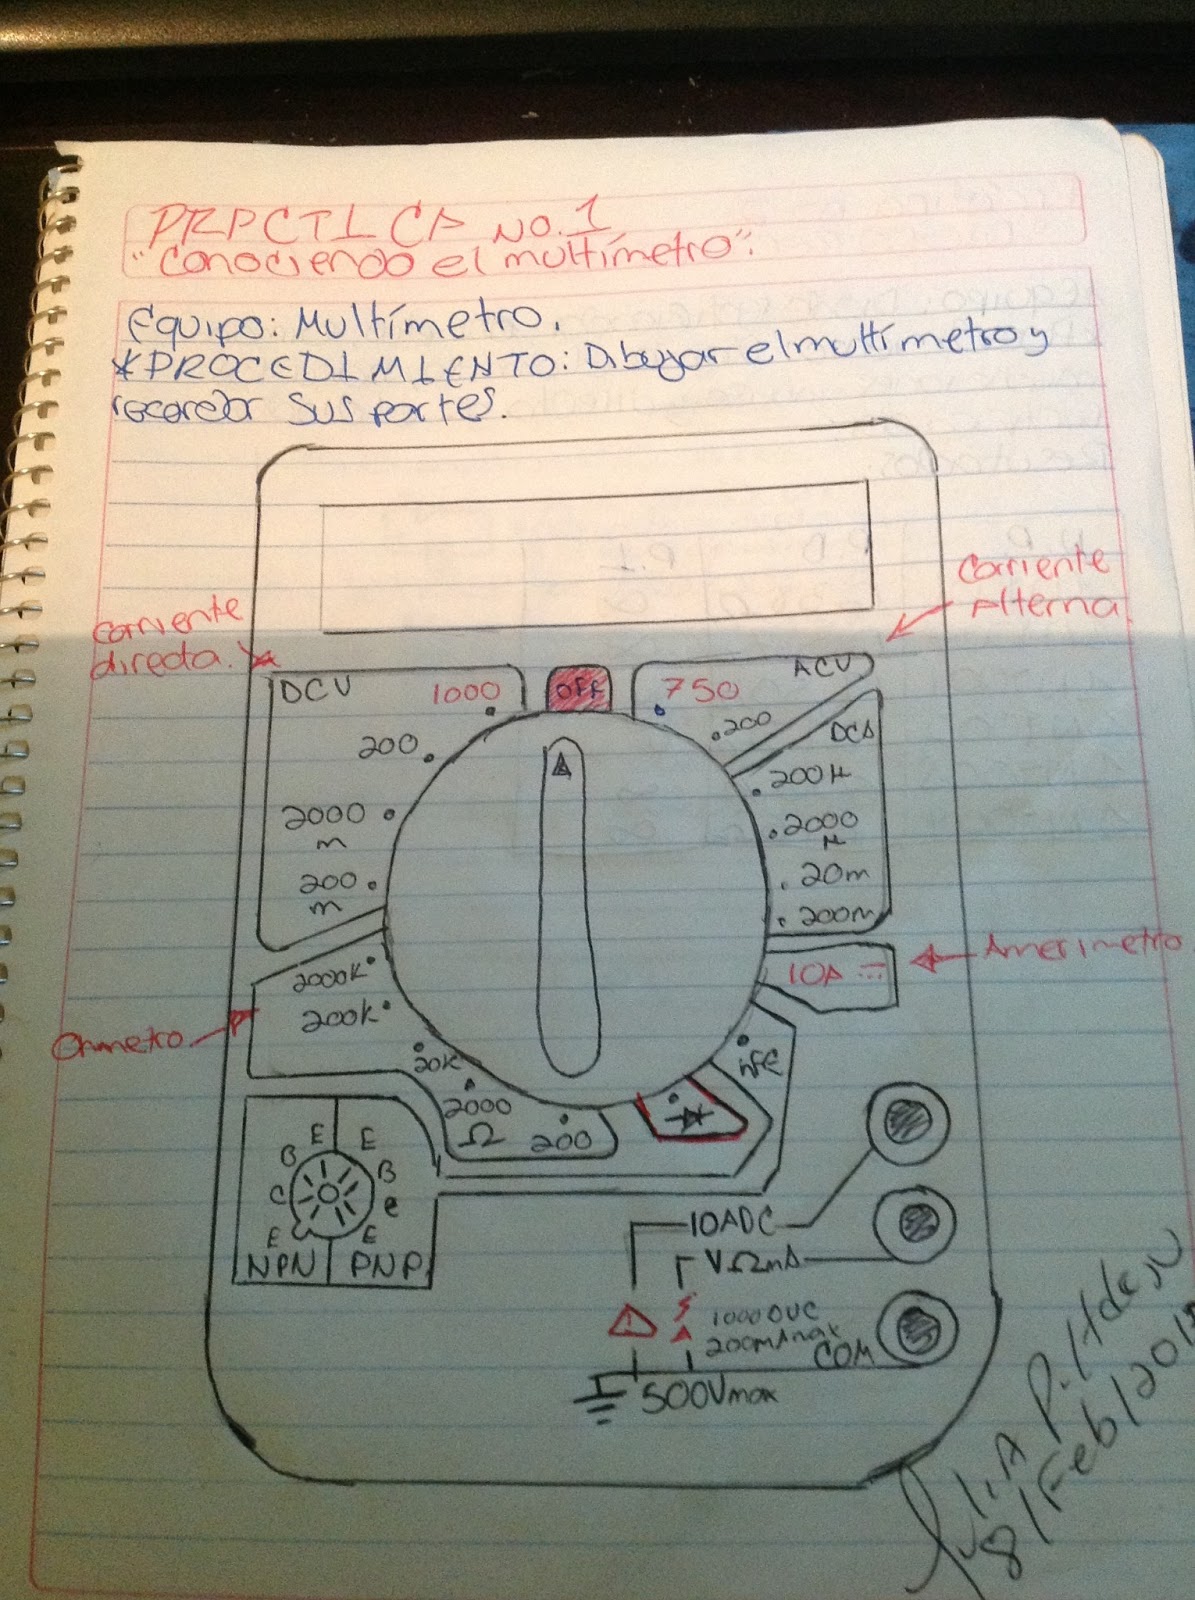 PRACTICA No. 1
"Conociendo el multímetro".
Equipo: Multímetro.
*PROCEDIMIENTO: Dibujar el multímetro y
recordar sus partes.
Corriente
Alterna
Corriente
directa.
DCV
1000
OFF
750
ACV
200
200
DCA
200µ
2000
m
2000
µ
200
m
20m
200m
2000K
200K
10A
Amerimetro
Ohmetro
20K
2000
Ω
200
hFE
E
E
B
B
C
e
E
E
NPN
PNP
10ADC
VΩmA
1000DVC
200mAmax
COM
500Vmax
8/Feb/201